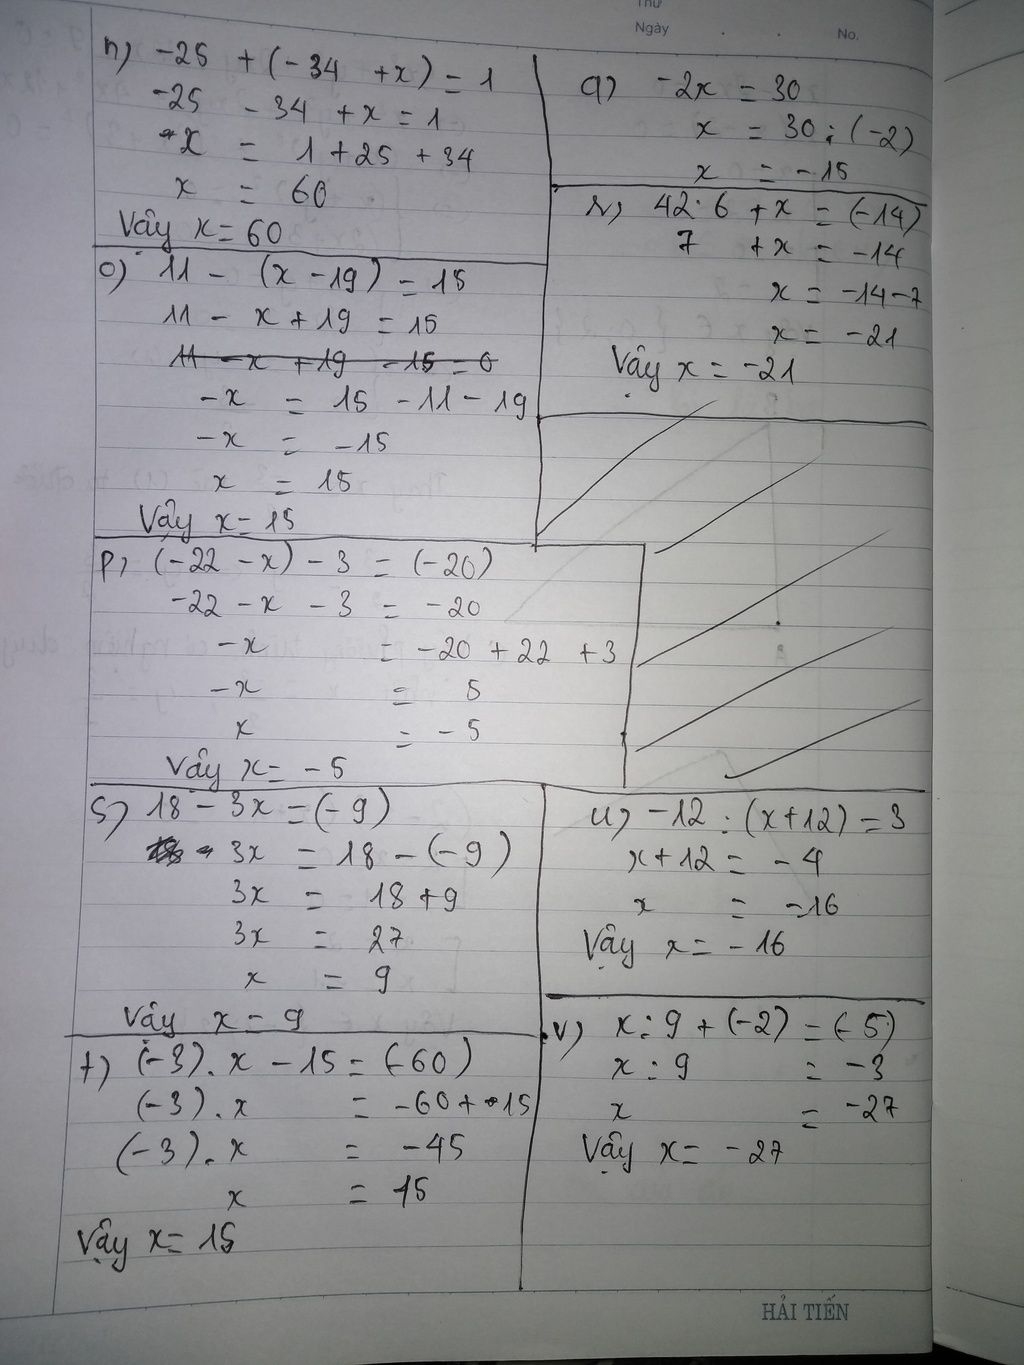 Thứ
Ngày . . No.
n) -25 + (-34 + x) = 1
-25 - 34 + x = 1
x = 1 + 25 + 34
x = 60
Vậy x = 60
o) 11 - (x - 19) = 15
11 - x + 19 = 15
11 - x + 19 - 15 = 0
-x = 15 - 11 - 19
-x = -15
x = 15
Vậy x = 15
p) (-22 - x) - 3 = (-20)
-22 - x - 3 = -20
-x = -20 + 22 + 3
-x = 5
x = -5
Vậy x = -5
q) -2x = 30
x = 30 : (-2)
x = -15
r) 42 : 6 + x = (-14)
7 + x = -14
x = -14 - 7
x = -21
Vậy x = -21
s) 18 - 3x = (-9)
3x = 18 - (-9)
3x = 18 + 9
3x = 27
x = 9
Vậy x = 9
t) (-3) . x - 15 = (-60)
(-3) . x = -60 + 15
(-3) . x = -45
x = 15
Vậy x = 15
u) -12 : (x + 12) = 3
x + 12 = -4
x = -16
Vậy x = -16
v) x : 9 + (-2) = (-5)
x : 9 = -3
x = -27
Vậy x = -27
HẢI TIẾN